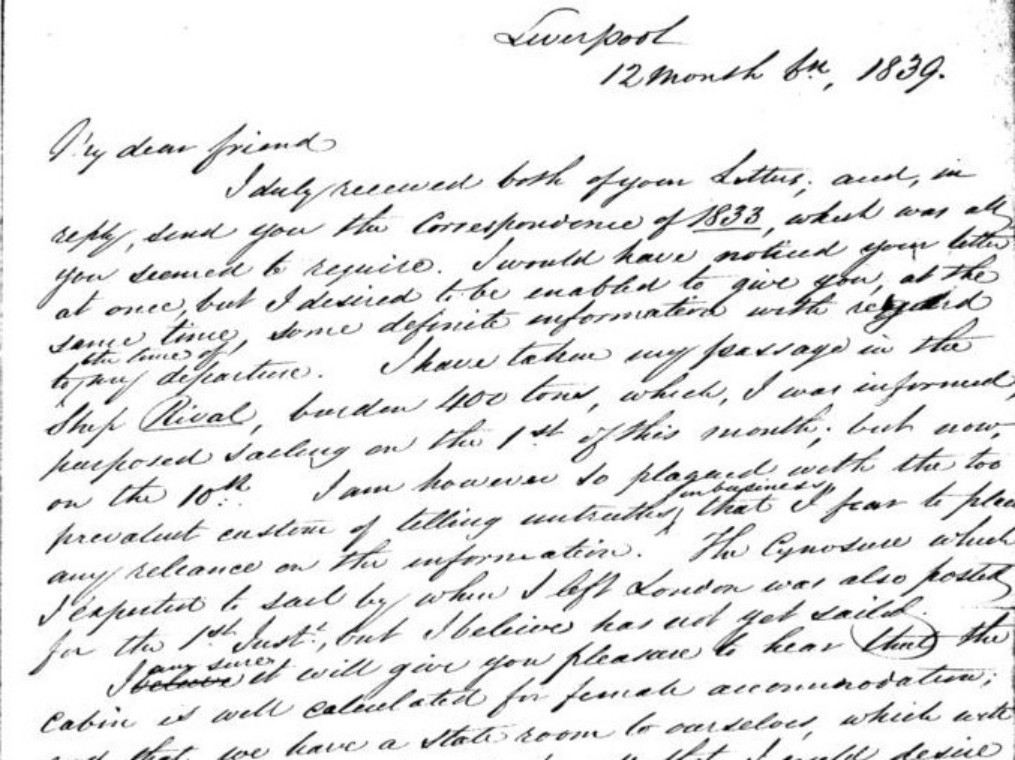 Liverpool
12 Month 6th, 1839.
My dear friend
I duly received both of your Letters; and, in
reply, send you the Correspondence of 1833, which was all
you seemed to require. I would have noticed your letter
at once, but I desired to be enabled to give you, at the
same time, some definite information with regard
the time of
to my departure. I have taken my passage in the
Ship Rival, burden 400 tons, which, I was informed,
purposed sailing on the 1st of this month; but now,
on the 10th. I am however so plagued with the too
in business,
prevalent custom of telling untruths, that I fear to place
any reliance on the information. The Cynosure which
I expected to sail by when I left London was also posted
for the 1st Inst., but I beleive has not yet sailed.
am sure
I beleive it will give you pleasure to hear that the
Cabin is well calculated for female accommodation;
and that we have a state room to ourselves, which with
that I could desire